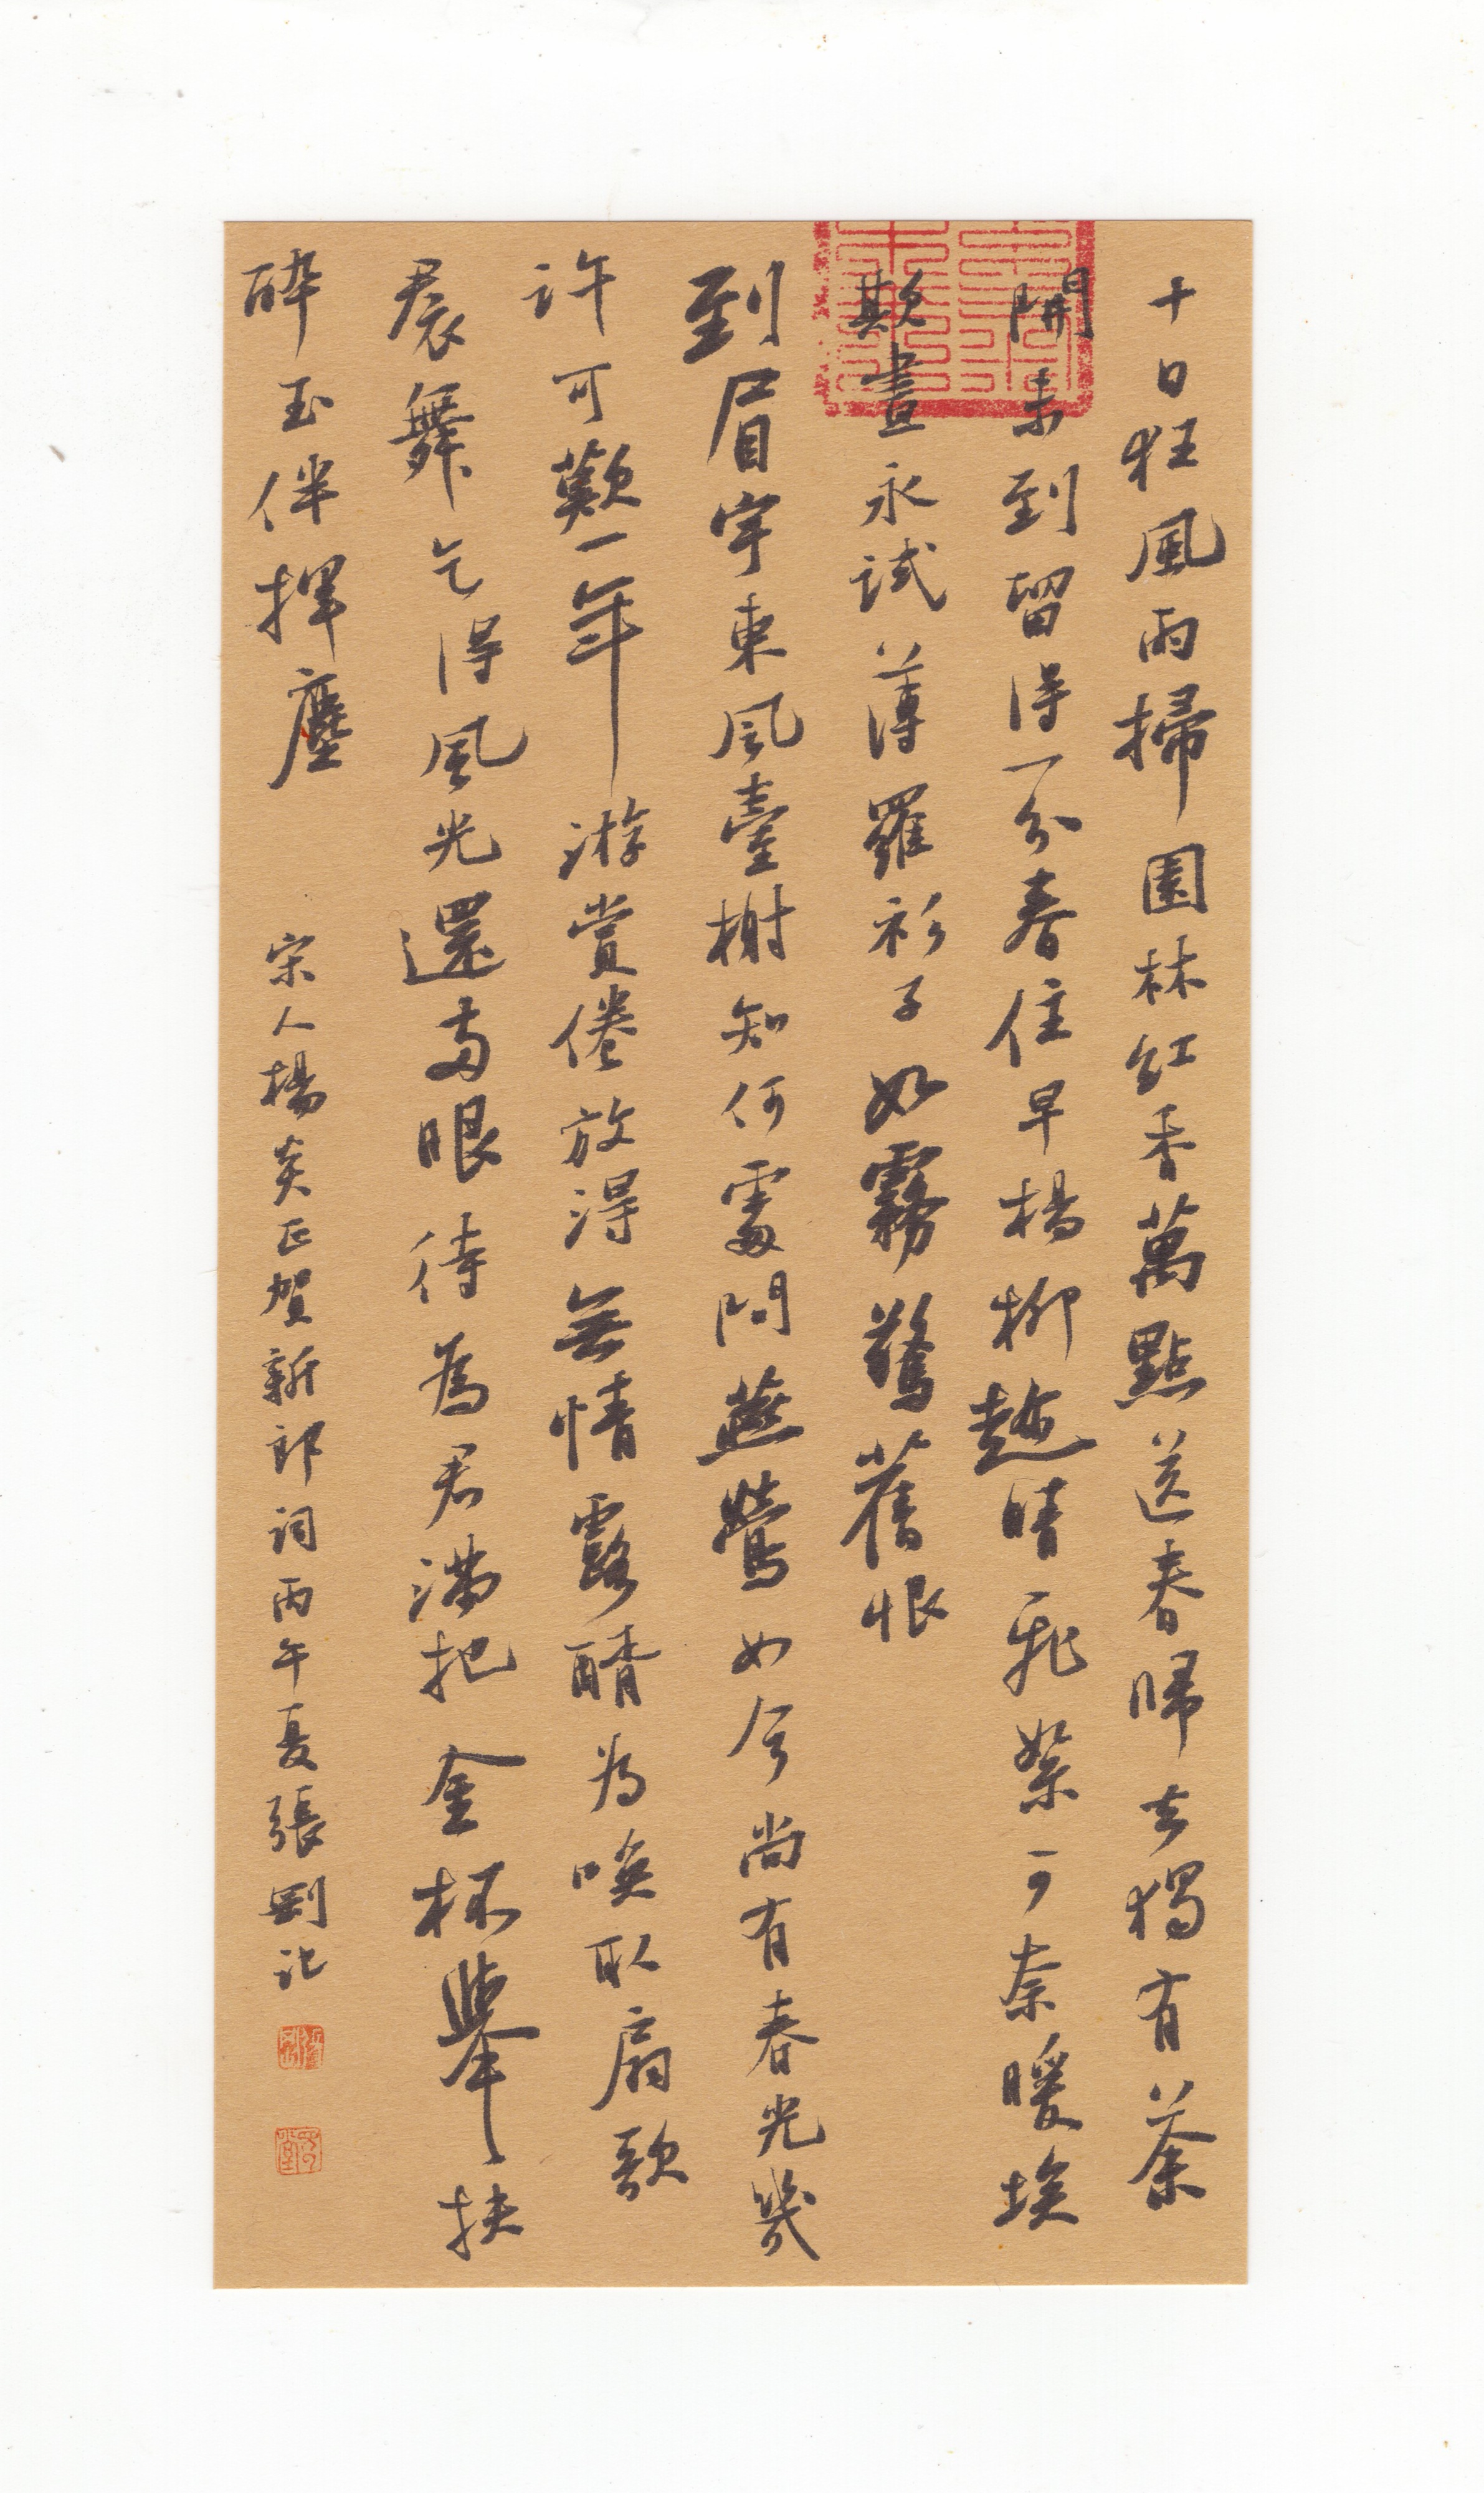 十日狂風雨掃園林紅香萬點送春歸去獨有荼
開未到留得一分春住早楊柳趁晴飛絮可奈暖埃
欺晝永試薄羅衫子如霧驚舊恨
到眉宇東風臺榭知何處問燕鶯如今尚有春光幾
許可歎一年游賞倦放得無情露醑為喚取扇歌
裙舞乞得風光還兩眼待為君滿把金杯舉扶
醉玉伴揮麈
宋人楊炎正賀新郎詞丙午夏張剛記